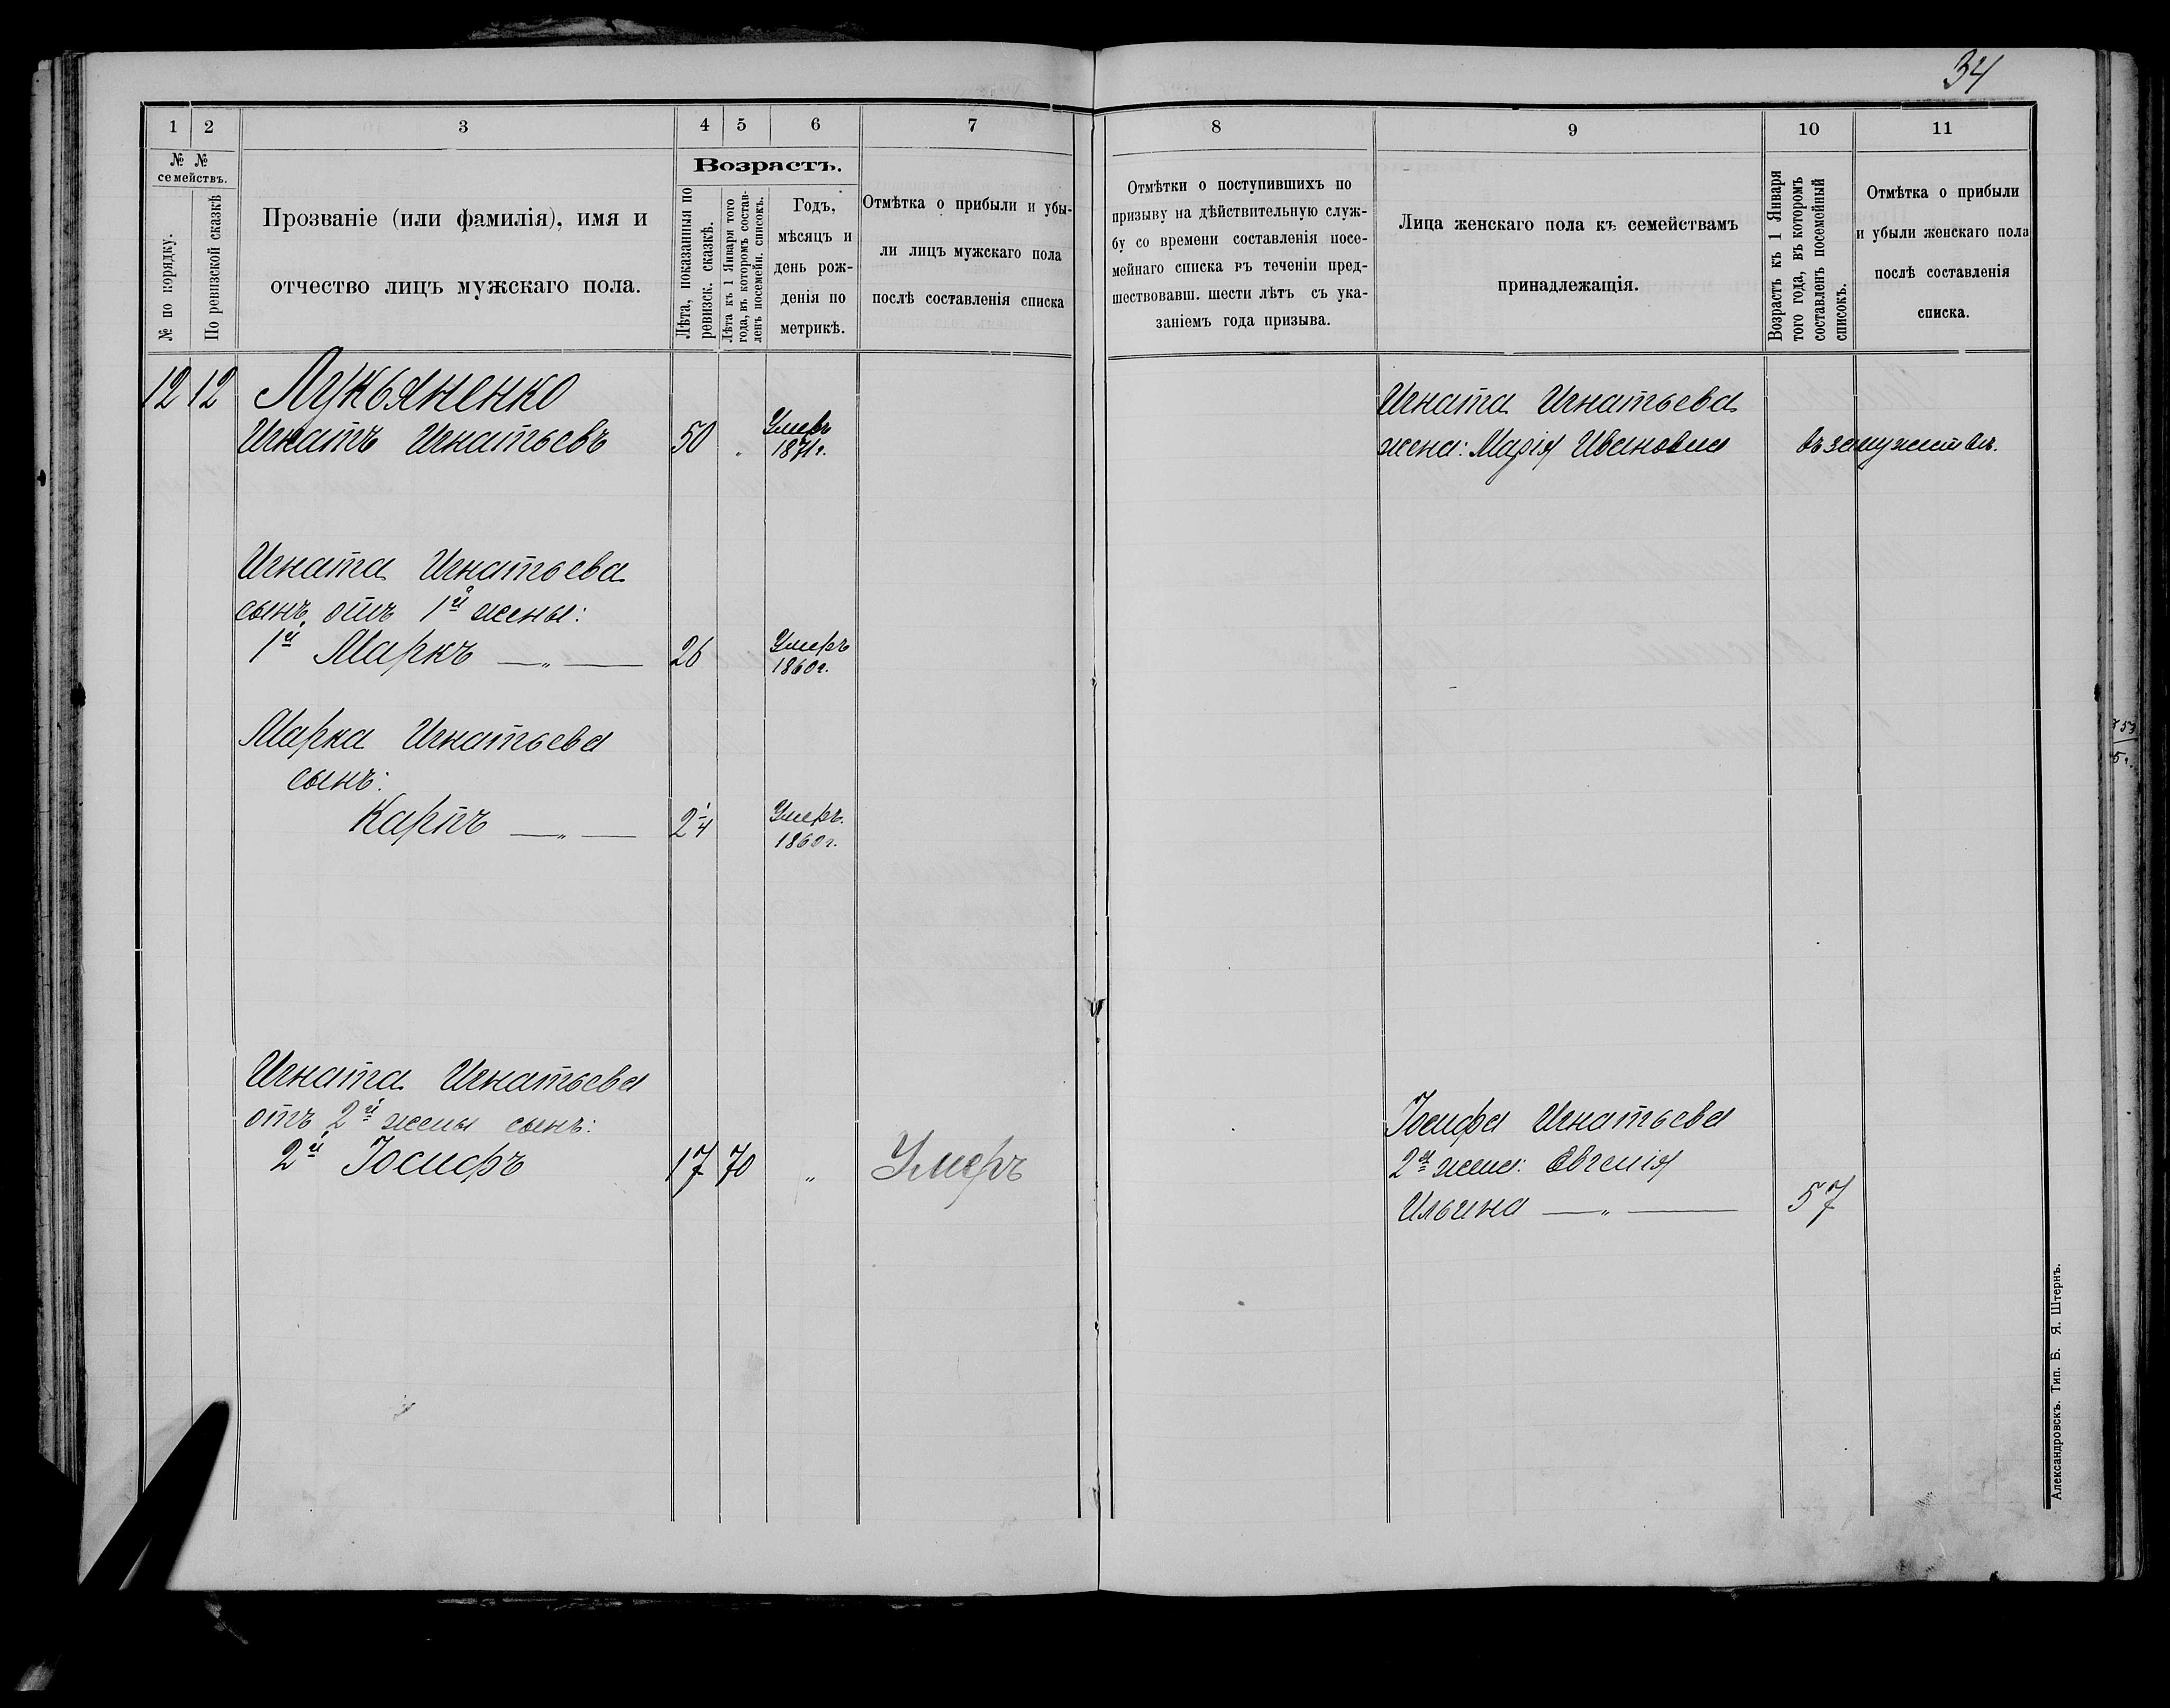 34
1
2
3
4
5
6
7
№ №
семействъ.
№ по порядку.
По ревизской сказкѣ
Прозваніе (или фамилія), имя и
отчество лицъ мужскаго пола.
Возрастъ.
Лѣта, показанныя по
ревизск. сказкѣ.
Лѣта къ 1 Января того
года, въ которомъ состав-
ленъ посемейн. списокъ.
Годъ,
мѣсяцъ и
день рож-
денія по
метрикѣ.
Отмѣтка о прибыли и убы-
ли лицъ мужскаго пола
послѣ составленія списка
12 12 Лукьяненко
Игнатъ Игнатьевъ 50 „ Умеръ
1871 г.
Игната Игнатьева
сынъ отъ 1й жены:
1й Маркъ —„— 26 Умеръ
1860 г.
Марка Игнатьева
сынъ:
Карпъ —„— 2 1/4 Умеръ.
1860 г.
Игната Игнатьева
отъ 2й жены сынъ:
2й Іосифъ 17 70 „ Умеръ
8
9
10
11
Отмѣтки о поступившихъ по
призыву на дѣйствительную служ-
бу со времени составленія посе-
мейнаго списка въ теченіи пред-
шествовавш. шести лѣтъ съ ука-
заніемъ года призыва.
Лица женскаго пола къ семействамъ
принадлежащія.
Возрастъ къ 1 Января
того года, въ которомъ
составленъ посемейный
списокъ.
Отмѣтка о прибыли
и убыли женскаго пола
послѣ составленія
списка.
Игната Игнатьева
жена: Марія Иванова въ замужествѣ.
Іосифа Игнатьева
2я жена: Евгенія
Ильина —„— 57
Александровскъ. Тип. Б. Я. Штернъ.